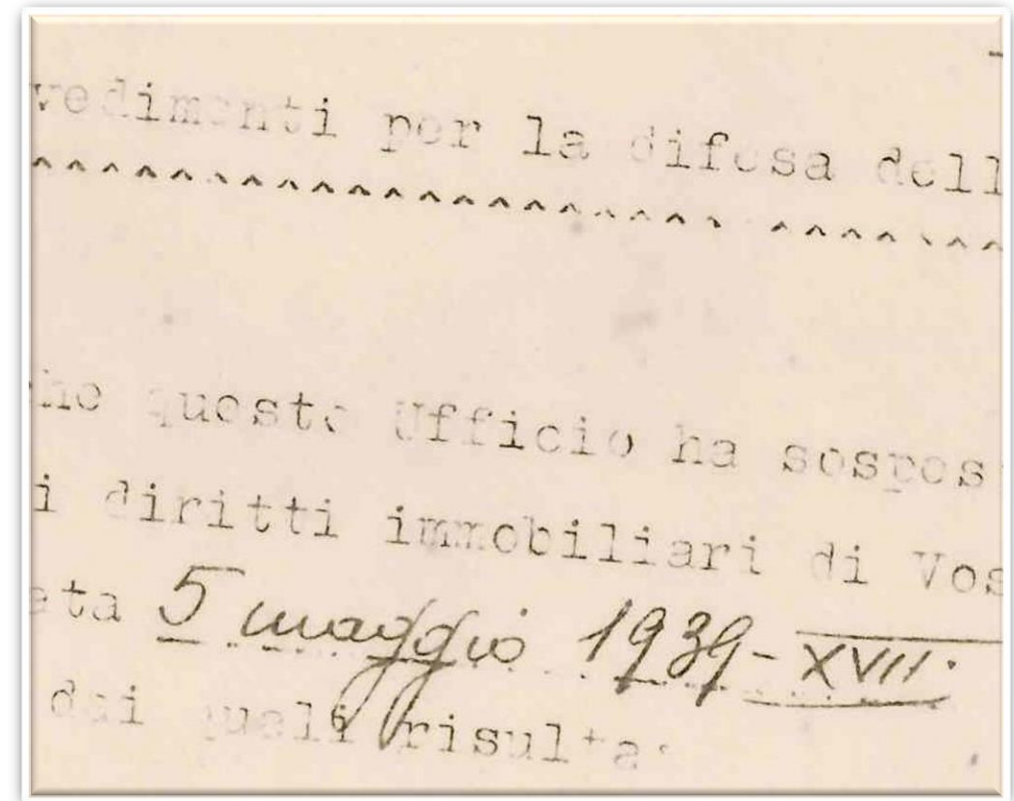 vedimenti per la difesa dell
^^^^^^^^^^^^^^^^^^^^ ^^^^^^^
ho questo Ufficio ha sospes
i diritti immobiliari di Vos
ata 5 maggio 1939-XVII.
dei quali risulta: